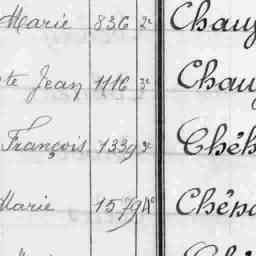 Marie 836 2e Chau
te Jean 1116 3e Chau
François 1339 3e Chéh
Marie 1579 4e Chéna